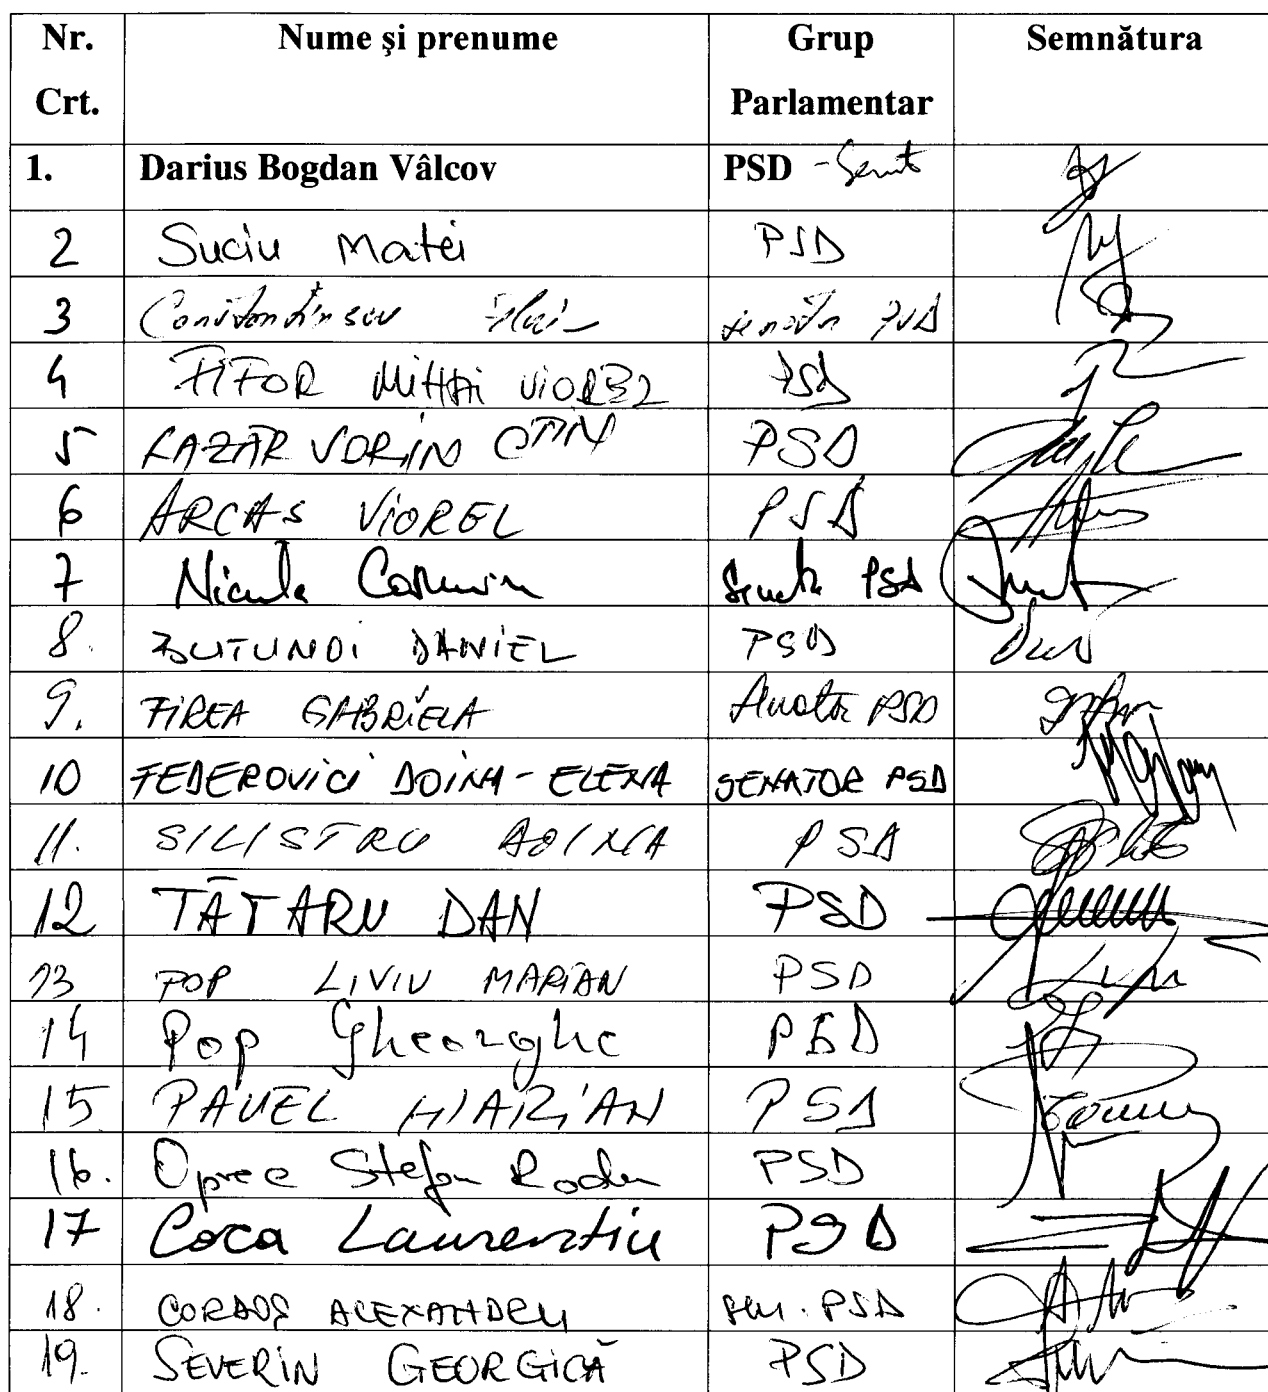 Nr. Crt. Nume şi prenume Grup Parlamentar Semnătura
1. Darius Bogdan Vâlcov PSD - Senat
2 Suciu Matei PSD
3 Constantinescu senator PSD
4 FIFOR MIHAI VIOREL PSD
5 LAZĂR SORIN CTIN PSD
6 ARCAS VIOREL PSD
7 Nicula Cosmin Senator PSD
8. BUTUNOI DANIEL PSD
9. FIREA GABRIELA Senator PSD
10 FEDEROVICI DOINA-ELENA SENATOR PSD
11. SILISTRU DOINA PSD
12 TĂTARU DAN PSD
13 POP LIVIU MARIAN PSD
14 Pop Gheorghe PSD
15 PAVEL MARIAN PSD
16. Oprea Stefan Radu PSD
17 Coca Laurentiu PSD
18. CORDOȘ ALEXANDRU sen. PSD
19. SEVERIN GEORGICĂ PSD